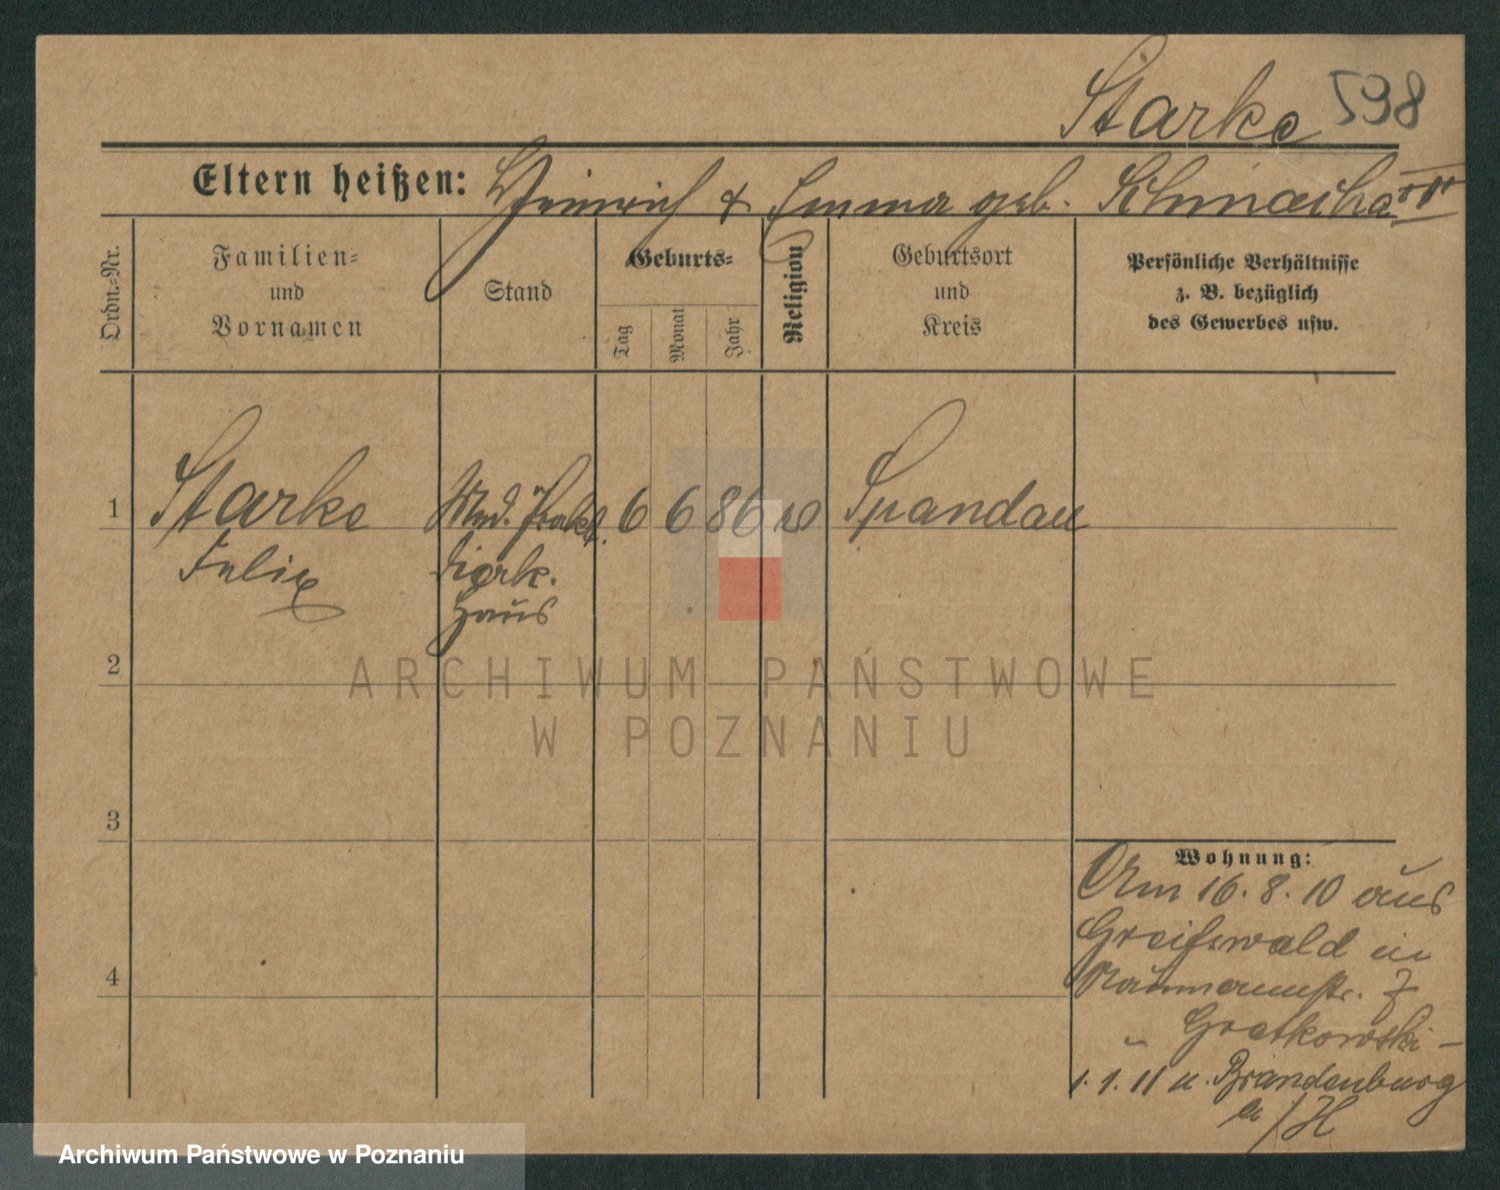 Starke 598
Eltern heißen: Heinrich & Emma geb.
Ordn.-Nr.
Familien-
und
Vornamen
Stand
Geburts-
Tag
Monat
Jahr
Religion
Geburtsort
und
Kreis
Persönliche Verhältnisse
z. B. bezüglich
des Gewerbes usw.
1 Starke Med. Prakt. 6 6 86 Spandau
Felix
Haus
2
3
4
Wohnung:
Am 16. 8. 10 aus
Greifswald in
Naumannstr. 7
Gretkowski -
1. 1. 11 n. Brandenburg
a/H
ARCHIWUM PAŃSTWOWE
W POZNANIU
Archiwum Państwowe w Poznaniu